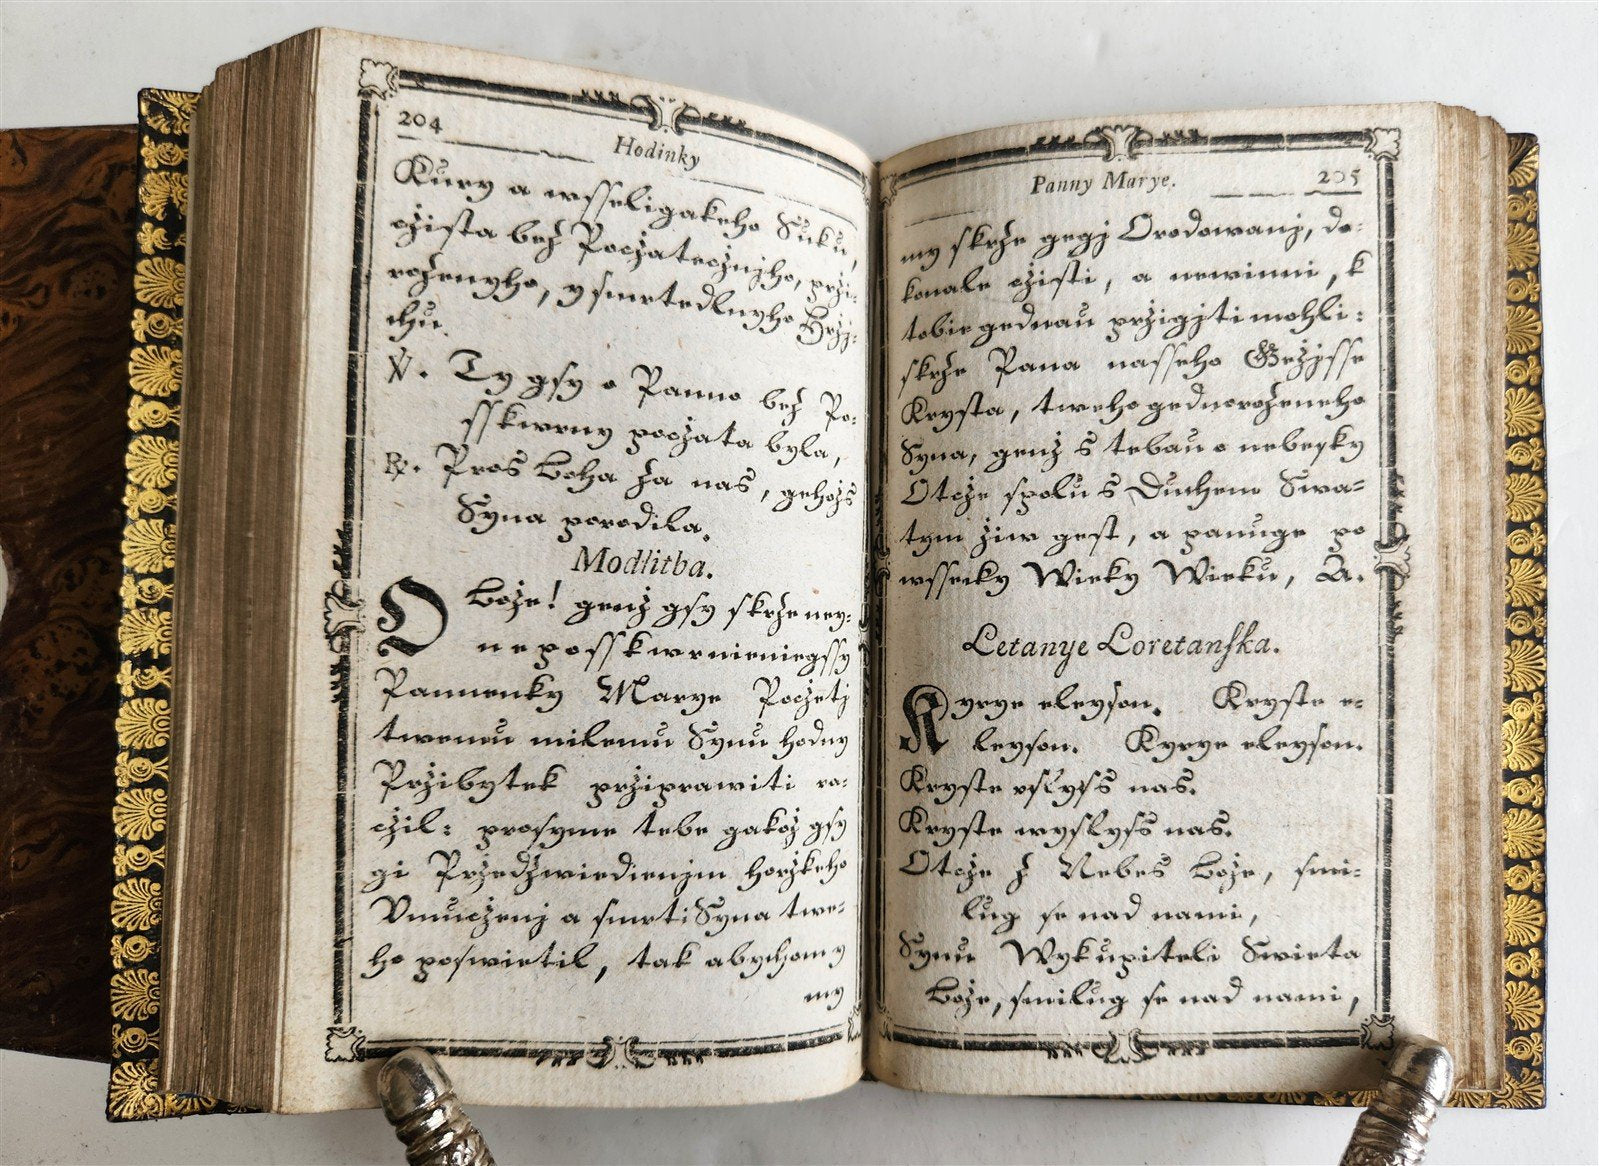 204
Hodinky
Kury a wsseligakeho Suku,
cżista bez Pocżatecżnjho, przi-
rozenyho, y smrtedlnyho Hrzj-
chu.
V. Ty gsy o Panno bez Po-
sskwrny pocżata byla,
R. Pros Boha za nas, gehożs
Syna porodila.
Modlitba.
O Boże! genż gsy skrże ney-
neposskwrnieniegssy
Pannenky Marye Pocżetj
twemu milemu Synu hodny
Pržibytek pržiprawiti ra-
cżil: prosyme tebe gakož gsy
gi Pržedżwiedienjm horžkeho
Vmucżenj a smrti Syna twe-
ho poswietil, tak abychom y
my
Panny Marye.
205
my skrże gegj Orodowanj, do-
konale cżisti, a newinni, k
tobie gednau pržigjti mohli:
skrże Pana nasseho Gežjsse
Krysta, tweho gednorozeneho
Syna, genż s tebau o nebesky
Otcże spolu s Duchem Swa-
tym żiw gest, a panuge po
wssecky Wieky Wieku, A.
Letanye Loretanska.
Kyrye eleyson. Kryste e-
leyson. Kyrye eleyson.
Kryste vslyss nas.
Kryste wyslyss nas.
Otcże z Nebes Boże, smi-
lug se nad nami,
Synu Wykupiteli Swieta
Boże, smilug se nad nami,